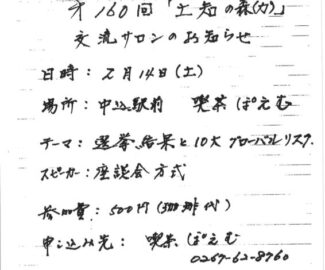 オ160回「土知の森(力)」
交流サロンのお知らせ
日時：2月14日(土)
場所：中込駅前 喫茶 ぽえむ
テーマ：選挙結果と10大グローバルリスク.
スピーカー：座談会方式
参加費：500円(珈琲代)
申し込み先：喫茶 ぽえむ
0267-62-8760